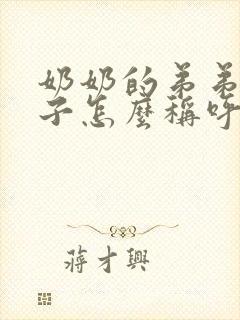 奶奶的弟弟
子怎麼稱呼
蔣才興